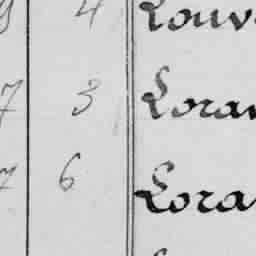 9 4 Louv
7 3 Loran
7 6 Lora